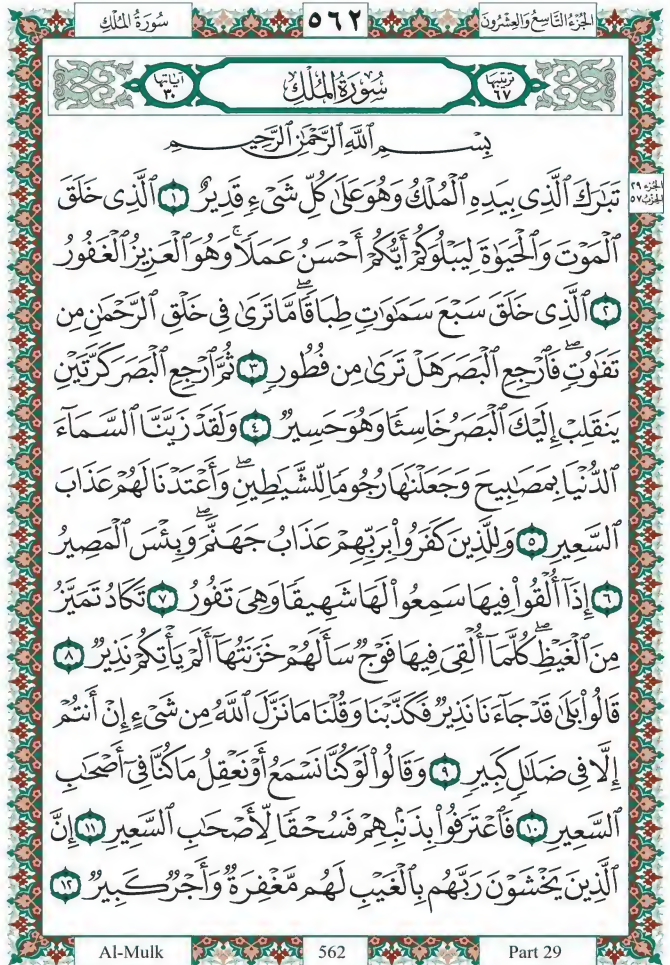 سُورَةُ المُلْكِ ٥٦٢ الجُزْءُ التَّاسِعُ وَالعِشْرُونَ
آيَاتُهَا ٣٠ سُورَةُ المُلْكِ تَرْتِيبُهَا ٦٧
بِسْمِ ٱللَّهِ ٱلرَّحْمَٰنِ ٱلرَّحِيمِ
الجزء ٢٩
الحزب ٥٧
تَبَٰرَكَ ٱلَّذِى بِيَدِهِ ٱلْمُلْكُ وَهُوَ عَلَىٰ كُلِّ شَىْءٍ قَدِيرٌ ١ ٱلَّذِى خَلَقَ
ٱلْمَوْتَ وَٱلْحَيَوٰةَ لِيَبْلُوَكُمْ أَيُّكُمْ أَحْسَنُ عَمَلًا ۚ وَهُوَ ٱلْعَزِيزُ ٱلْغَفُورُ
٢ ٱلَّذِى خَلَقَ سَبْعَ سَمَٰوَٰتٍ طِبَاقًا ۖ مَّا تَرَىٰ فِى خَلْقِ ٱلرَّحْمَٰنِ مِن
تَفَٰوُتٍ ۖ فَٱرْجِعِ ٱلْبَصَرَ هَلْ تَرَىٰ مِن فُطُورٍ ٣ ثُمَّ ٱرْجِعِ ٱلْبَصَرَ كَرَّتَيْنِ
يَنقَلِبْ إِلَيْكَ ٱلْبَصَرُ خَاسِئًا وَهُوَ حَسِيرٌ ٤ وَلَقَدْ زَيَّنَّا ٱلسَّمَآءَ
ٱلدُّنْيَا بِمَصَٰبِيحَ وَجَعَلْنَٰهَا رُجُومًا لِّلشَّيَٰطِينِ ۖ وَأَعْتَدْنَا لَهُمْ عَذَابَ
ٱلسَّعِيرِ ٥ وَلِلَّذِينَ كَفَرُوا۟ بِرَبِّهِمْ عَذَابُ جَهَنَّمَ ۖ وَبِئْسَ ٱلْمَصِيرُ
٦ إِذَآ أُلْقُوا۟ فِيهَا سَمِعُوا۟ لَهَا شَهِيقًا وَهِىَ تَفُورُ ٧ تَكَادُ تَمَيَّزُ
مِنَ ٱلْغَيْظِ ۖ كُلَّمَآ أُلْقِىَ فِيهَا فَوْجٌ سَأَلَهُمْ خَزَنَتُهَآ أَلَمْ يَأْتِكُمْ نَذِيرٌ ٨
قَالُوا۟ بَلَىٰ قَدْ جَآءَنَا نَذِيرٌ فَكَذَّبْنَا وَقُلْنَا مَا نَزَّلَ ٱللَّهُ مِن شَىْءٍ إِنْ أَنتُمْ
إِلَّا فِى ضَلَٰلٍ كَبِيرٍ ٩ وَقَالُوا۟ لَوْ كُنَّا نَسْمَعُ أَوْ نَعْقِلُ مَا كُنَّا فِىٓ أَصْحَٰبِ
ٱلسَّعِيرِ ١٠ فَٱعْتَرَفُوا۟ بِذَنۢبِهِمْ فَسُحْقًا لِّأَصْحَٰبِ ٱلسَّعِيرِ ١١ إِنَّ
ٱلَّذِينَ يَخْشَوْنَ رَبَّهُم بِٱلْغَيْبِ لَهُم مَّغْفِرَةٌ وَأَجْرٌ كَبِيرٌ ١٢
Al-Mulk 562 Part 29